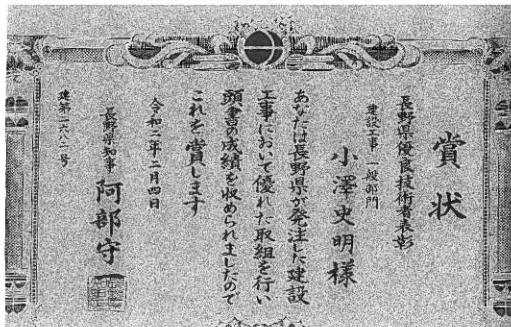 賞状
長野県優良技術者表彰
建設工事 一般部門
小澤史明様
あなたは長野県が発注した建設
工事において優れた取組を行い
頭書の成績を収められましたので
これを賞します
令和二年二月四日
長野県知事 阿部守一
建第一六八二号